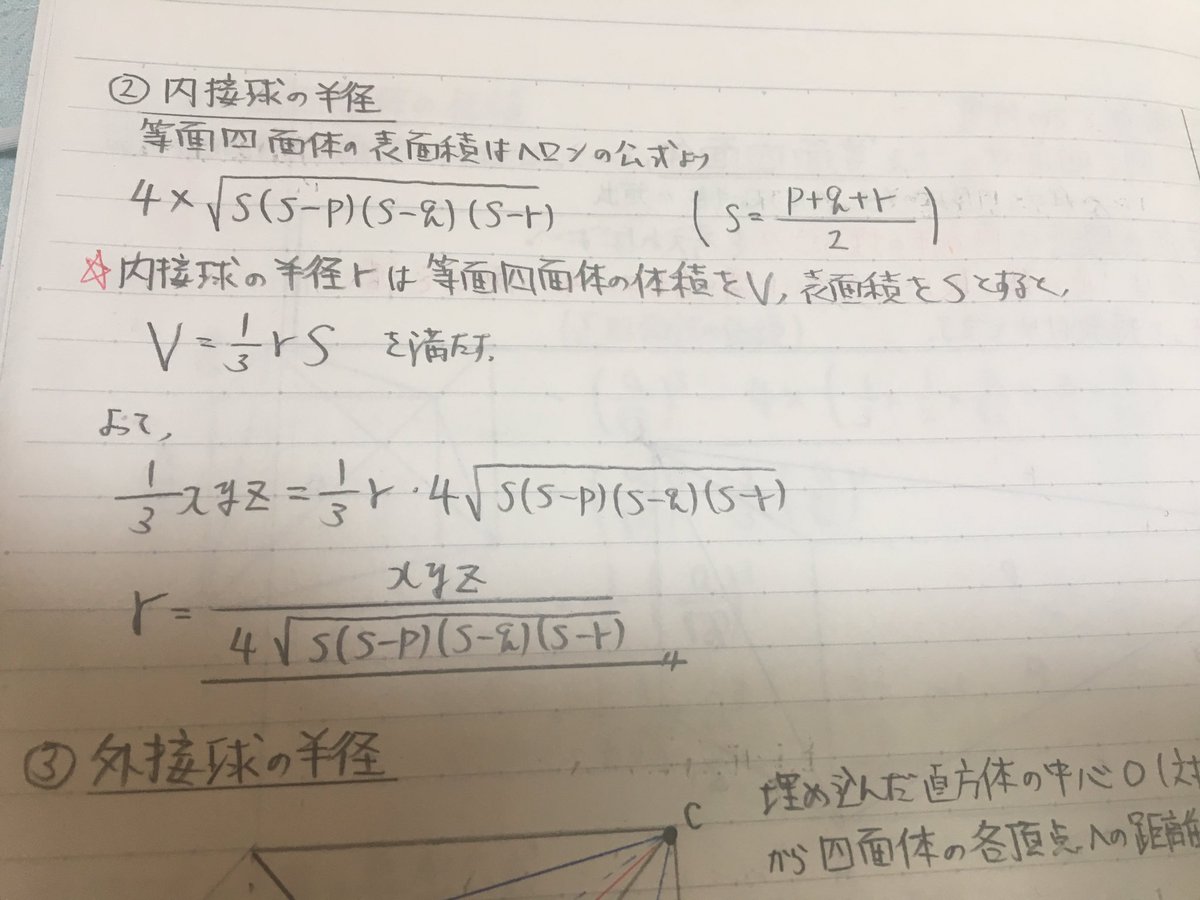 ② 内接球の半径
等面四面体の表面積はヘロンの公式より
4×√S(S-p)(S-q)(S-r) (S=p+q+r/2)
☆内接球の半径rは等面四面体の体積をV, 表面積をSとすると,
V=1/3rS を満たす.
よって,
1/3xyz=1/3r・4√S(S-p)(S-q)(S-r)
r=xyz/4√S(S-p)(S-q)(S-r)
③ 外接球の半径
埋め込んだ直方体の中心O(対
から四面体の各頂点への距離
C